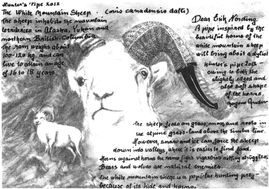 Hunter's Pipe 2012
The White Mountain Sheep - (ovis canadensis dalli)
The sheep inhabits the mountain
territories in Alaska, Yukon and
northern British Columbia.
The ram weighs about
100-120 kg, and can
live to obtain an age
of 16 to 18 years.
Dear Erik Nørding
A pipe inspired by the
beautiful horns of the
white mountain sheep
will bring about
hunter's pipe 2012
owing to both the
slightly edged and
also soft shape
of the horns.
The sheep feeds on grass, moss and roots in
the alpine grass-land above the timber line.
However, snow and ice can force the sheep
down into valleys where it is easier to find food.
Horns against horns the rams fight vigorously
Bears and wolves are natural enemies.
The white mountain sheep is a popular hunting prey
because of its hide and horns.